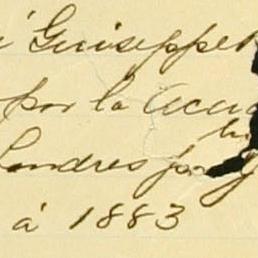 Guiseppe
por la Acca
Londres po
á 1883